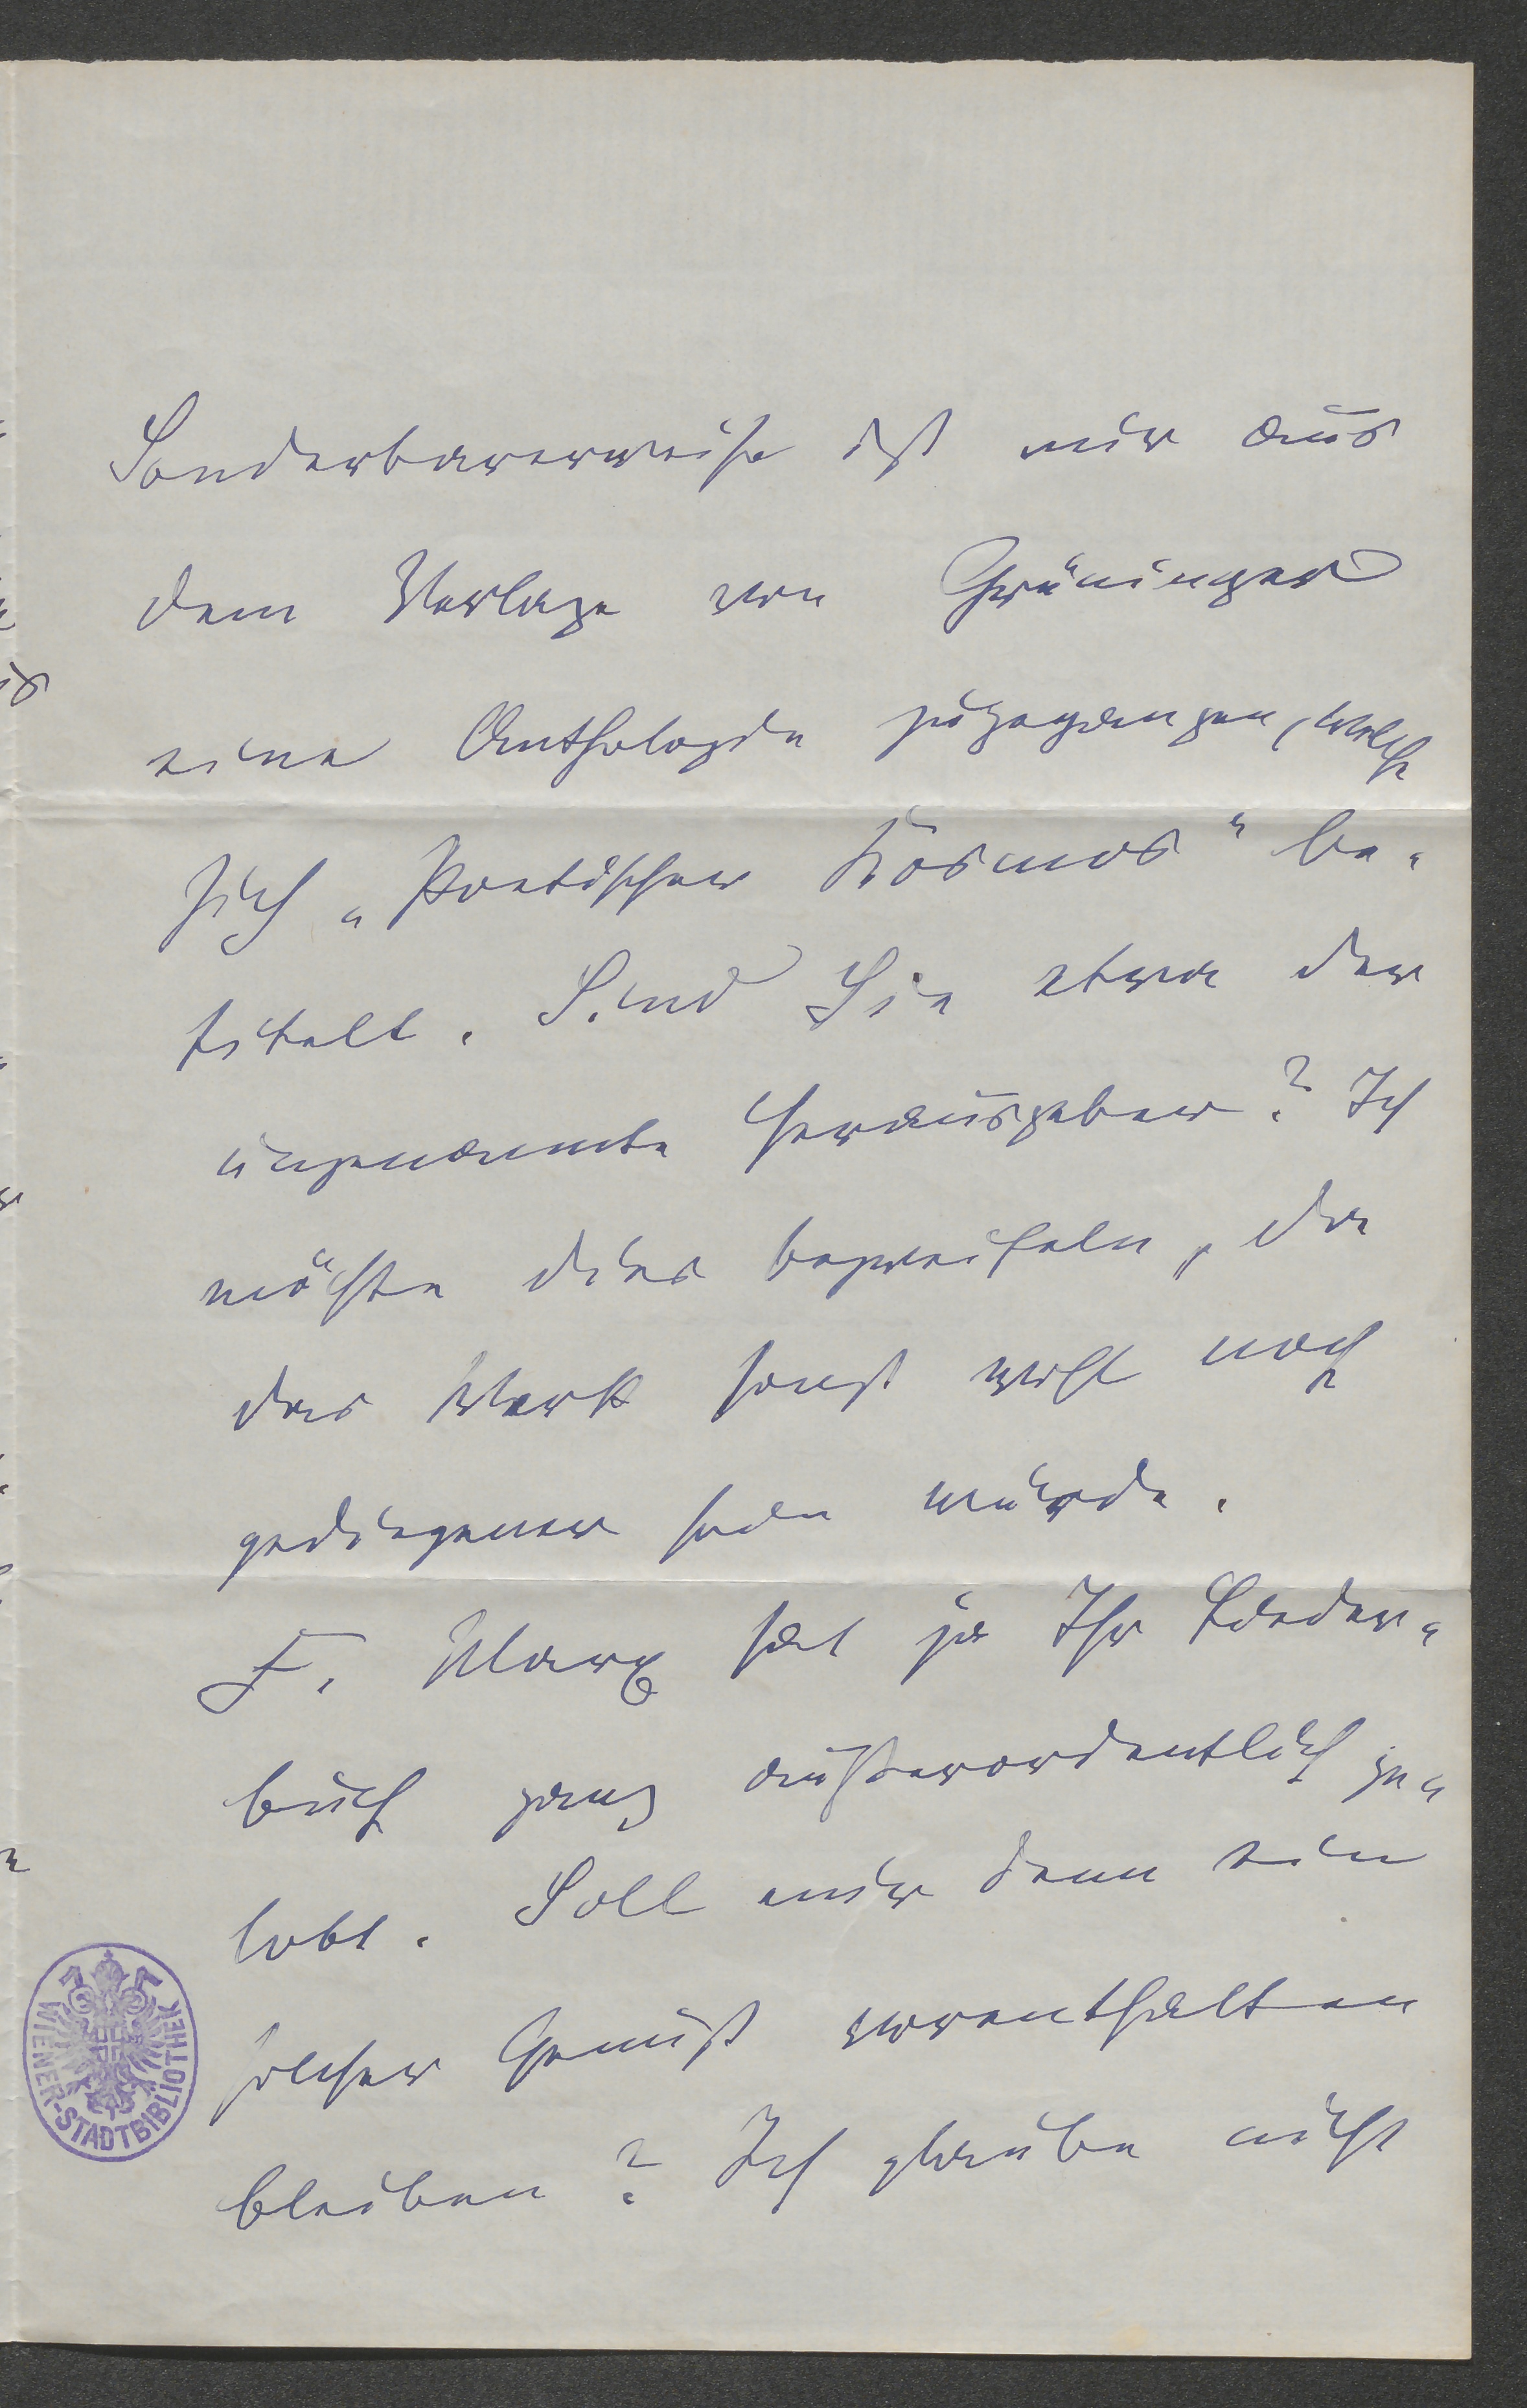 Sonderbarerweise ist mir aus
dem Verlage von Grüninger
eine Anthologie zugegangen, welche
sich „Poetischer Kosmos" be-
titelt. Sind Sie etwa der
ungenannte Herausgeber? Ich
möchte dies bezweifeln, da
das Werk sonst wohl noch
gediegener sein würde.
F. Marx hat ja Ihr Lieder-
buch ganz außerordentlich ge-
lobt. Soll mir denn ein
solcher Genuß vorenthalten
bleiben? Ich glaube nicht
WIENER-STADTBIBLIOTHEK